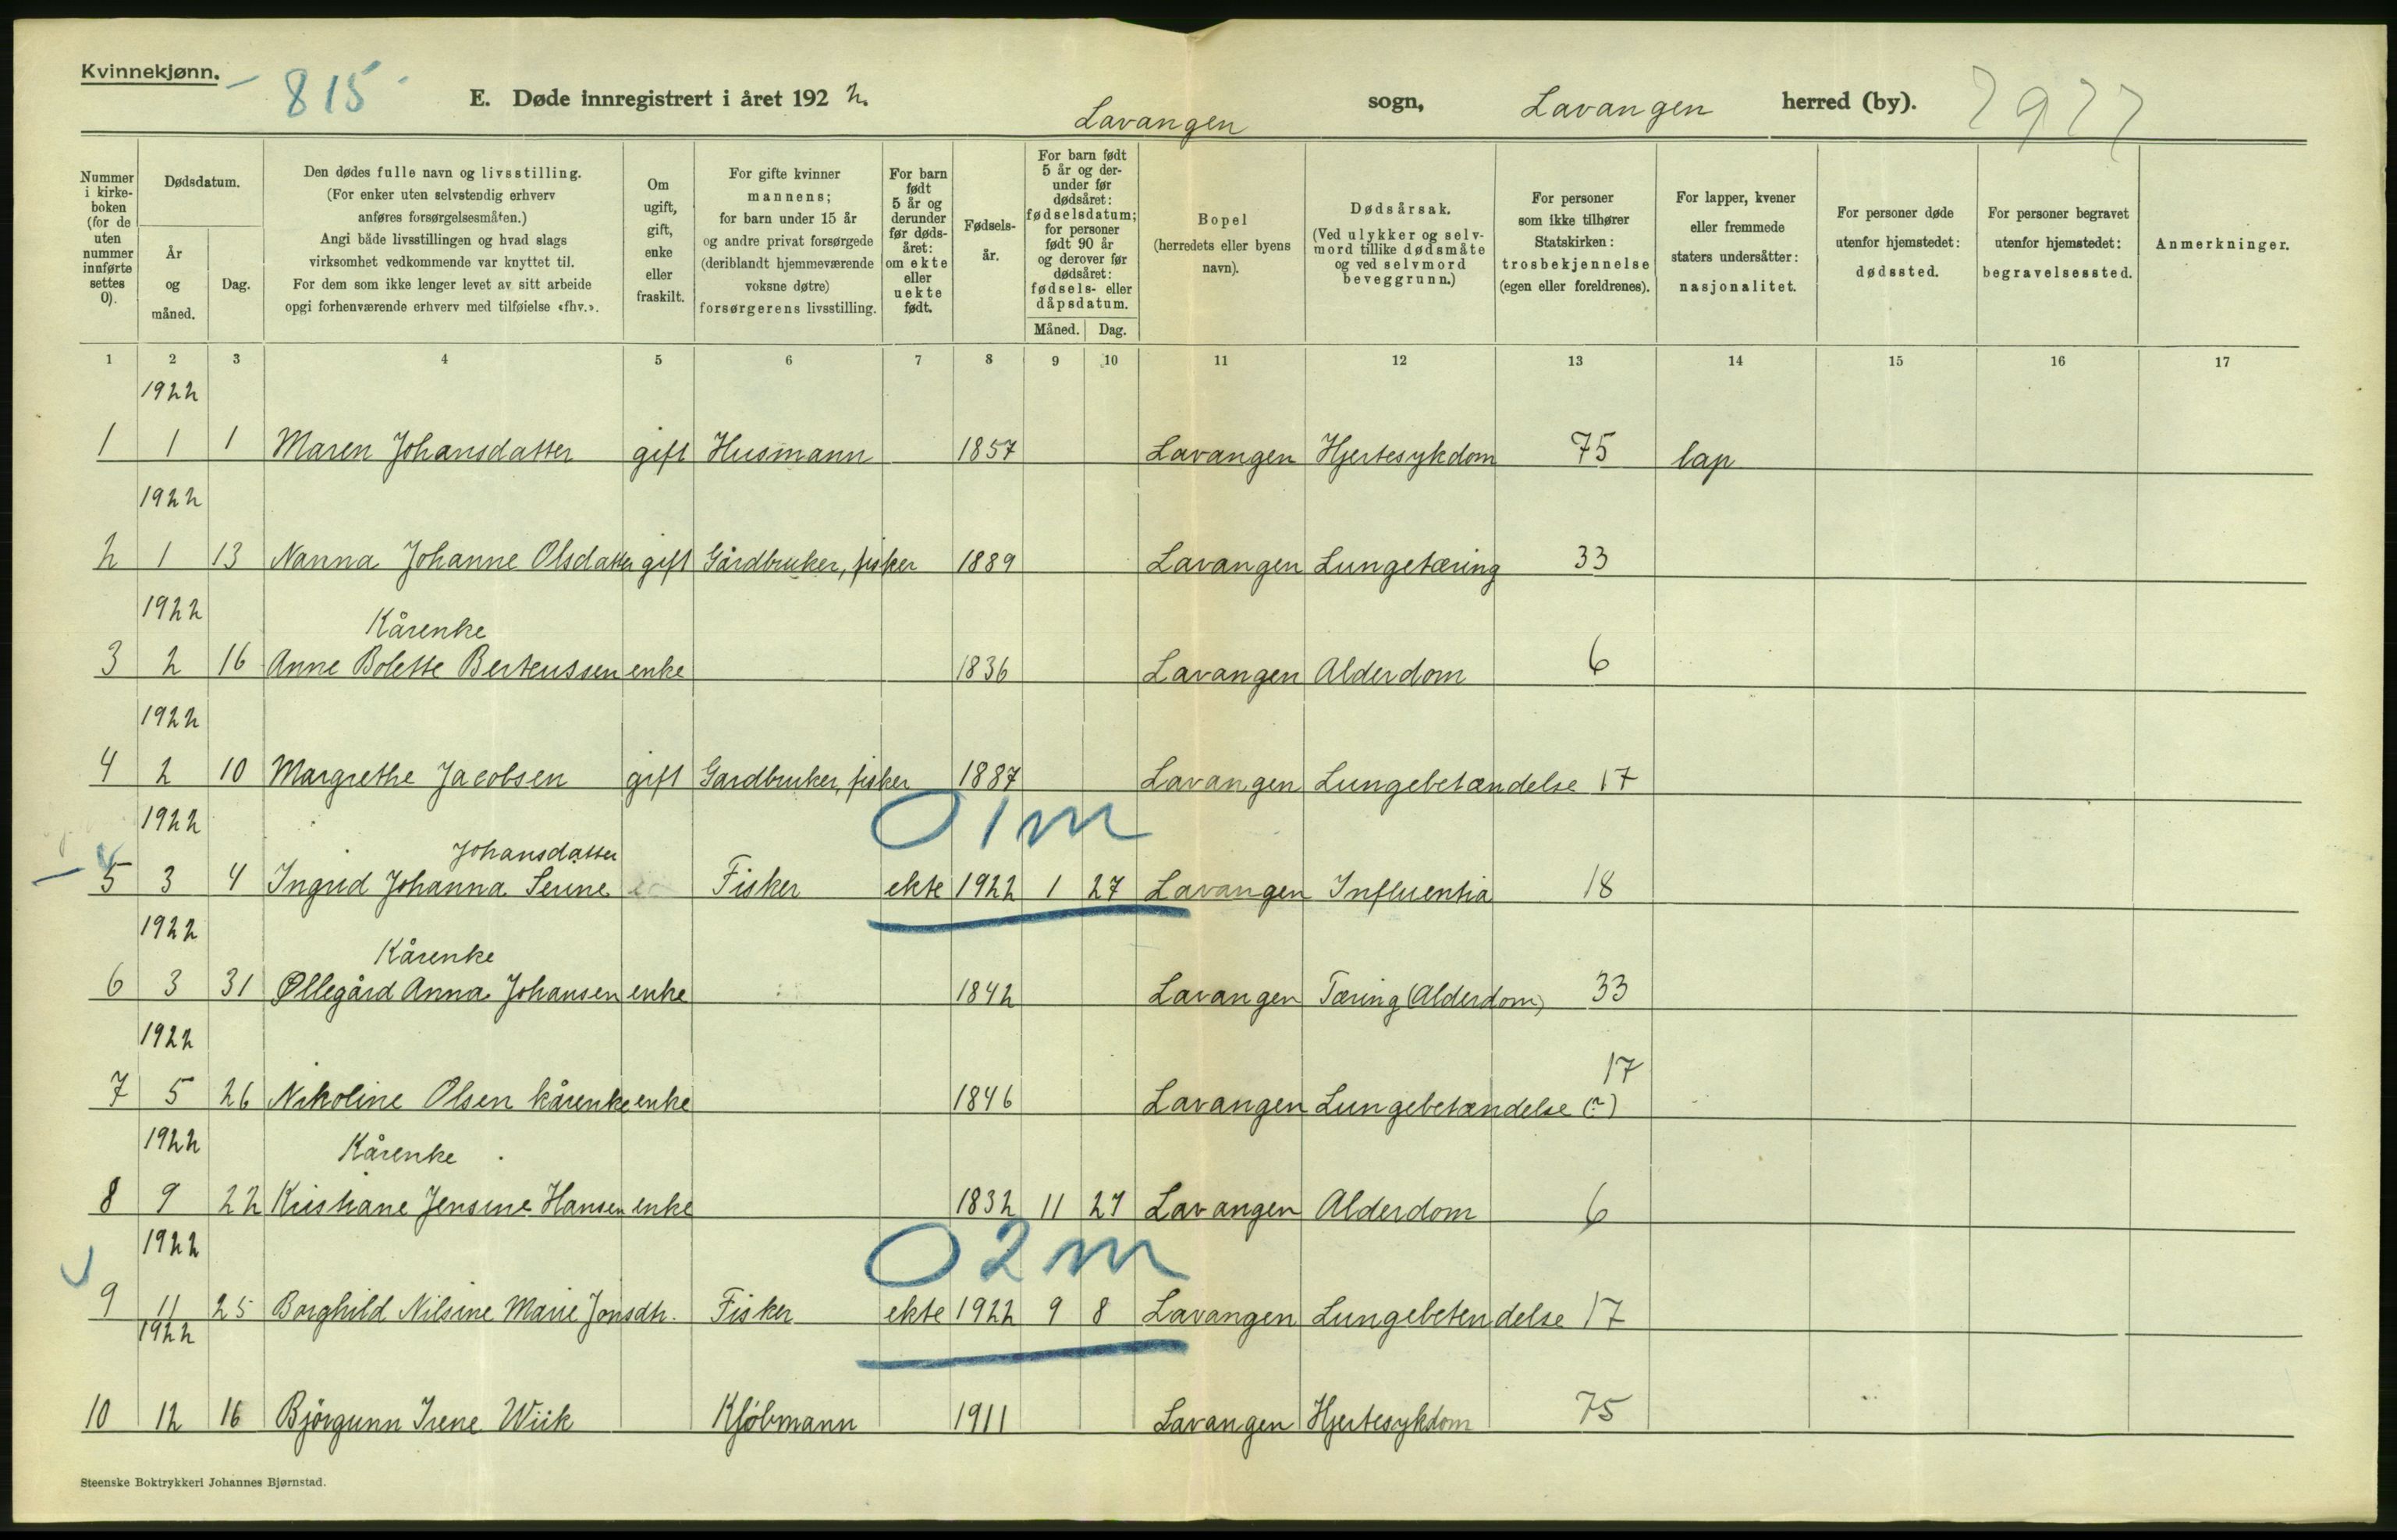 Kvinnekjønn. - 815 -
E. Døde innregistrert i året 1922. Lavangen sogn, Lavangen herred (by).
Nummer i kirkeboken (for de uten nummer innførte settes 0).
Dødsdatum.
År og måned.
Dag.
Den dødes fulle navn og livsstilling.
(For enker uten selvstendig erhverv
anføres forsørgelsesmåten.)
Angi både livsstillingen og hvad slags
virksomhet vedkommende var knyttet til.
For dem som ikke lenger levet av sitt arbeide
opgi forhenværende erhverv med tilføielse «fhv.».
Om ugift, gift, enke eller fraskilt.
For gifte kvinner
mannens;
for barn under 15 år
og andre privat forsørgede
(deriblandt hjemmeværende
voksne døtre)
forsørgerens livsstilling.
For barn født 5 år og derunder før dødsåret: om ekte eller uekte født.
Fødselsår.
For barn født 5 år og derunder før dødsåret: fødselsdatum; for personer født 90 år og derover før dødsåret: fødsels- eller dåpsdatum.
Måned. Dag.
Bopel
(herredets eller byens
navn).
Dødsårsak.
(Ved ulykker og selvmord tillike dødsmåte og ved selvmord beveggrunn.)
For personer
som ikke tilhører
Statskirken:
trosbekjennelse
(egen eller foreldrenes).
For lapper, kvener
eller fremmede
staters undersåtter:
nasjonalitet.
For personer døde
utenfor hjemstedet:
dødssted.
For personer begravet
utenfor hjemstedet:
begravelsessted.
Anmerkninger.
1 2 3 4 5 6 7 8 9 10 11 12 13 14 15 16 17
1922
1 1 1 Maren Johansdatter gift Husmann 1857 Lavangen Hjertesykdom 75 lap
1922
2 1 13 Nanna Johanne Olsdatter gift Gårdbruker, fisker 1889 Lavangen Lungetæring 33
1922
Kårenke
3 2 16 Anne Bolette Berteussen enke 1836 Lavangen Alderdom 6
1922
4 2 10 Margrethe Jacobsen gift Gardbruker, fisker 1887 Lavangen Lungebetændelse 17
1922 0 1 m
Johansdatter
5 3 4 Ingrid Johanna Fisker ekte 1922 1 27 Lavangen Influentia 18
1922
Kårenke
6 3 31 Ollegård Anna Johansen enke 1842 Lavangen Tæring (Alderdom) 33
1922
17
7 5 26 Nikoline Olsen kårenke enke 1846 Lavangen Lungebetændelse (?)
1922
Kårenke
8 9 22 Kristiane Jensine Hansen enke 1832 11 27 Lavangen Alderdom 6
1922 0 2 m
9 11 25 Borghild Nilsine Marie Jonsdtr. Fisker ekte 1922 9 8 Lavangen Lungebetendelse 17
1922
10 12 16 Björgunn Irene Wiik Kjøbmann 1911 Lavangen Hjertesykdom 75
Steenske Boktrykkeri Johannes Bjørnstad.